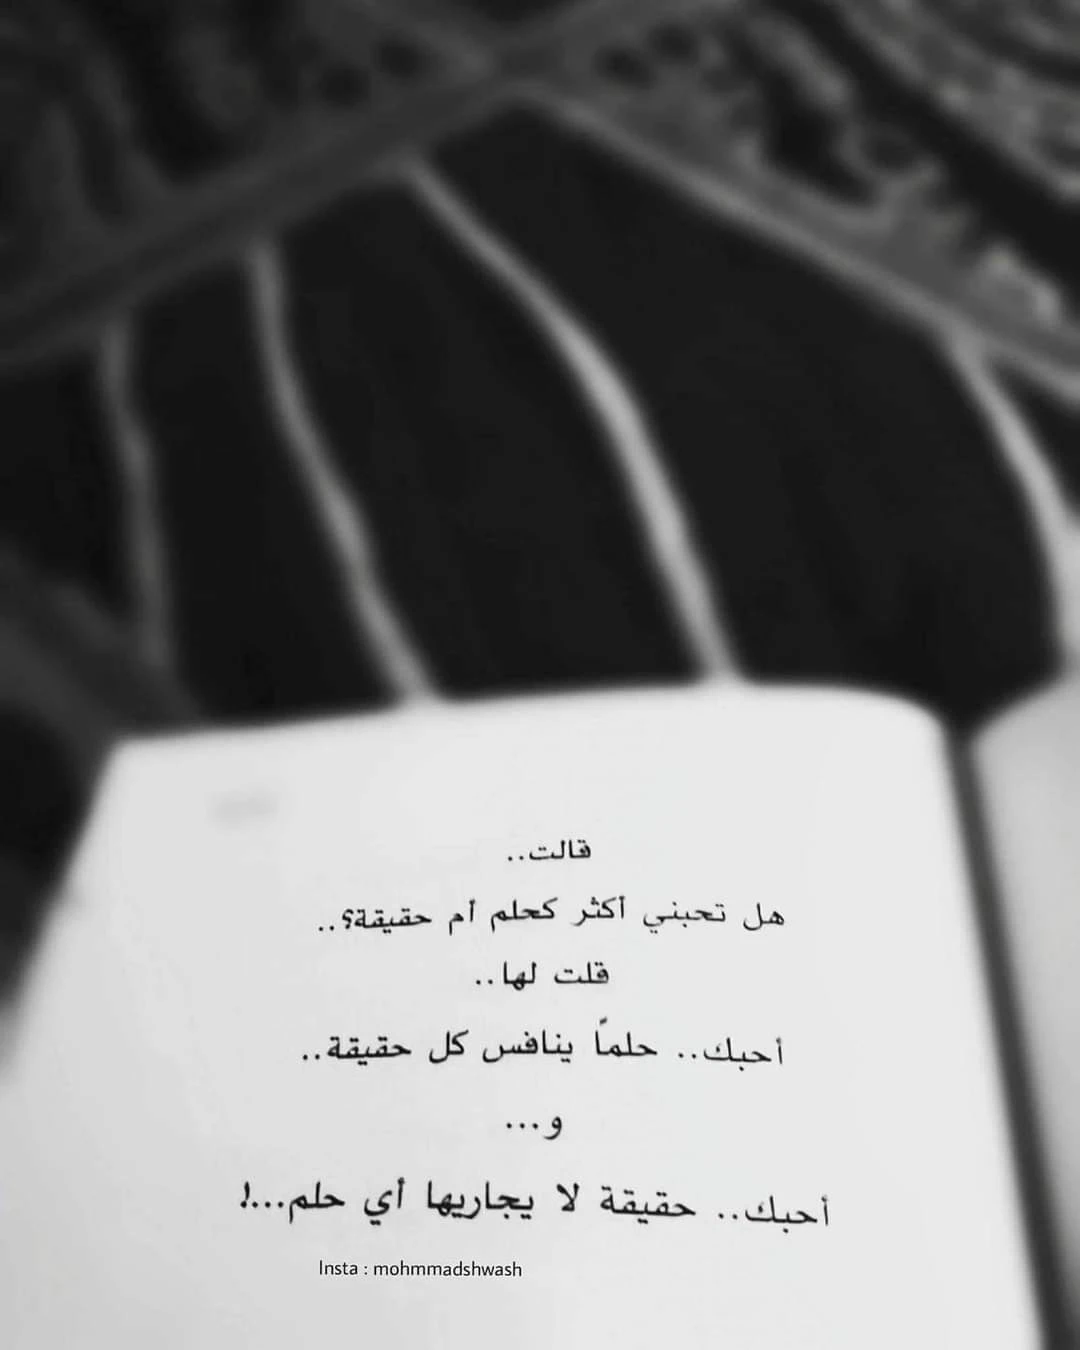 قالت..
هل تحبني أكثر كحلم أم حقيقة؟..
قلت لها..
أحبك.. حلماً ينافس كل حقيقة..
و...
أحبك.. حقيقة لا يجاريها أي حلم...!
Insta : mohmmadshwash